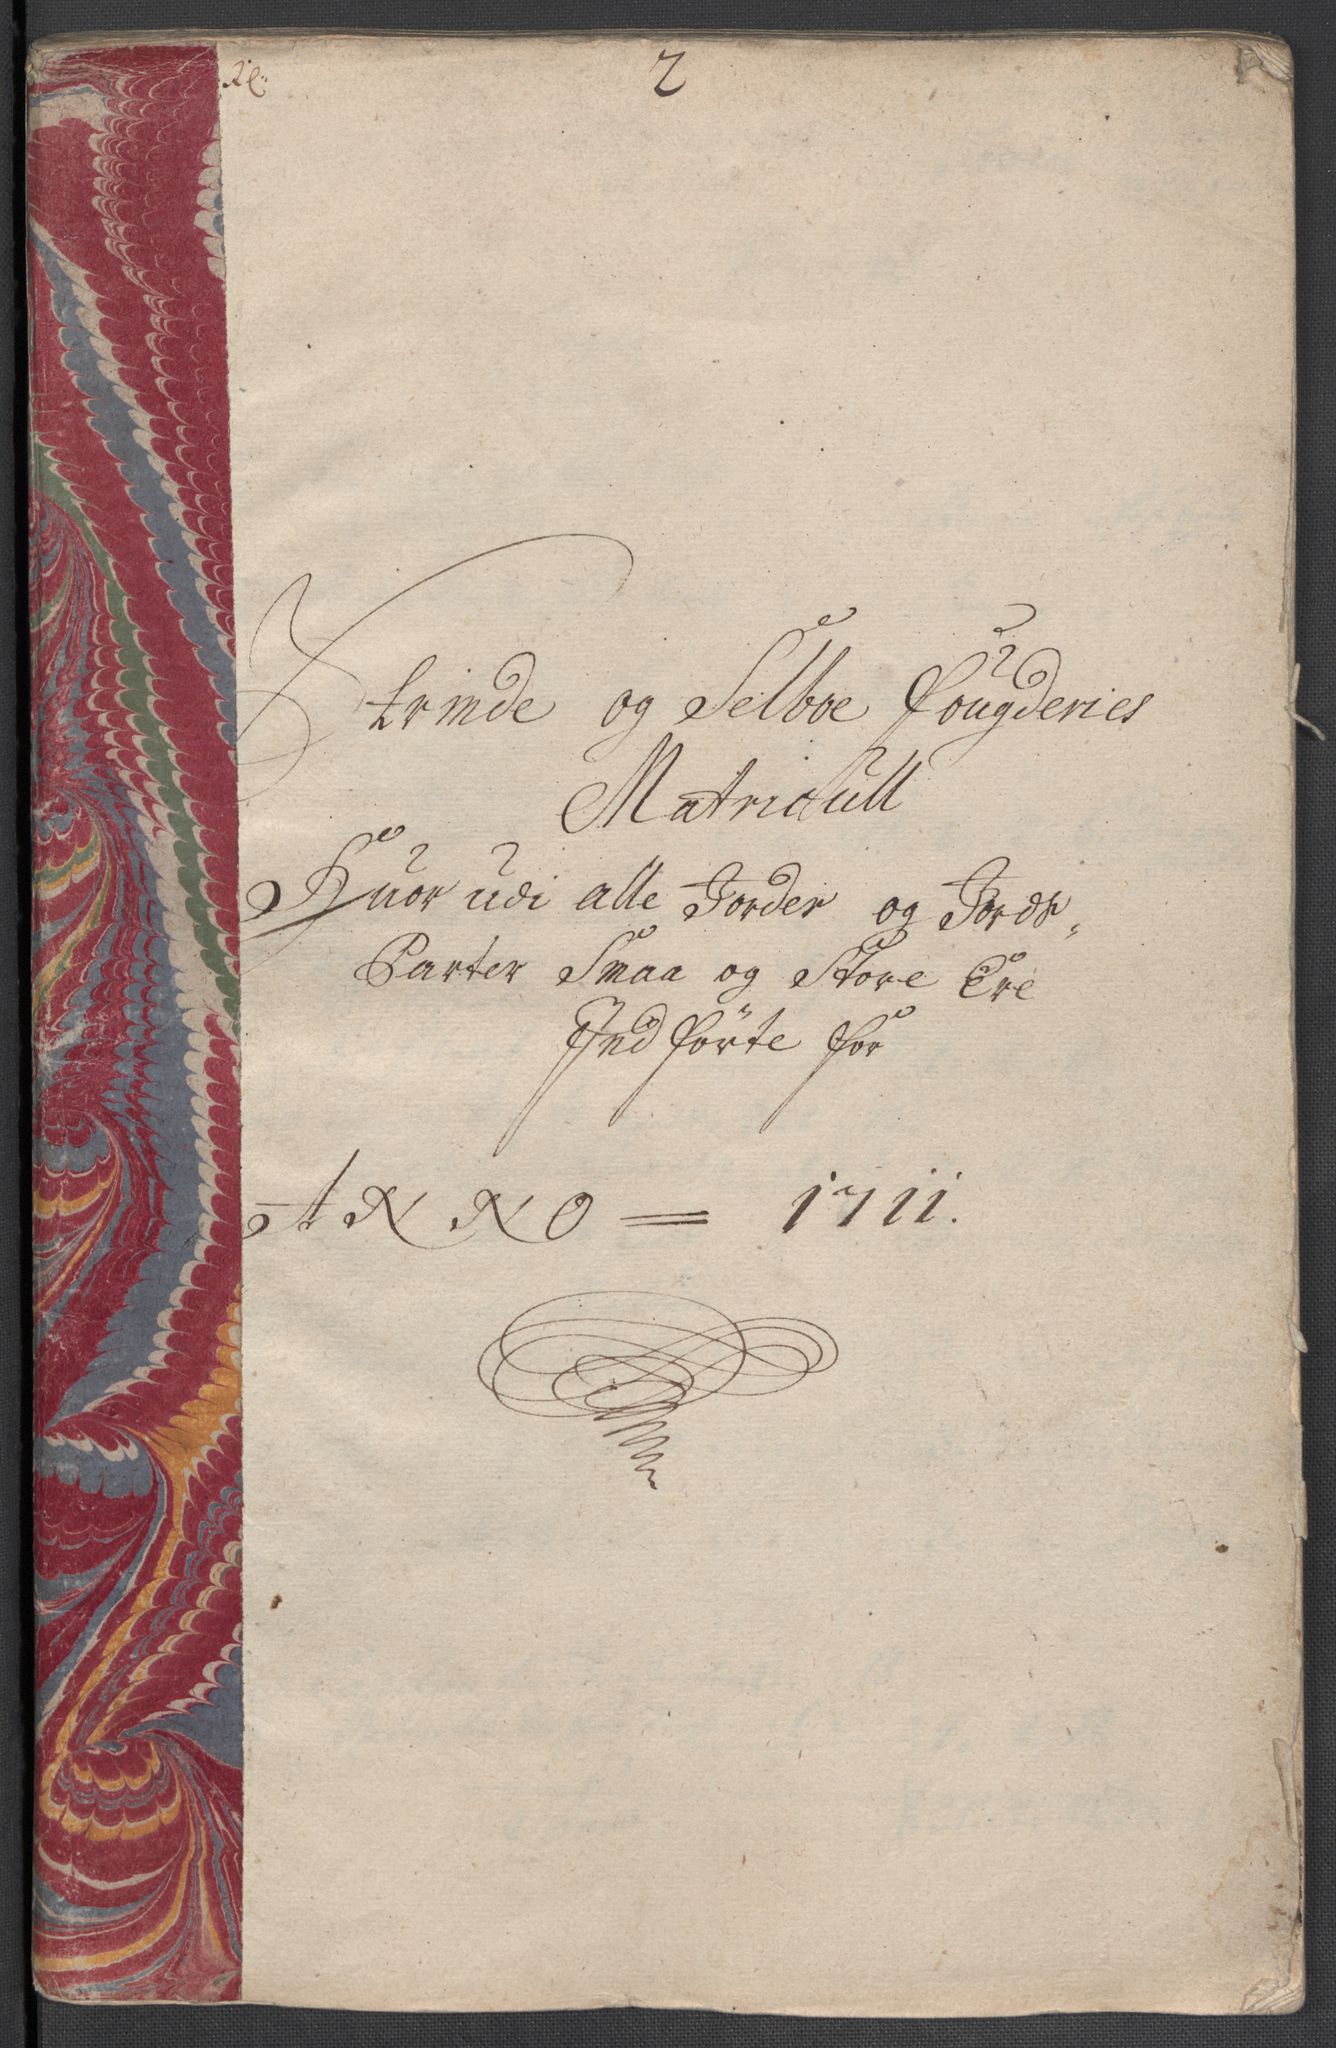 2
Strinde og Selboe fougderies
Matricull
Huor udi alle Jorder og Jords,
Parter Smaa og Store Ere
Indförte for
ANNO = 1711.